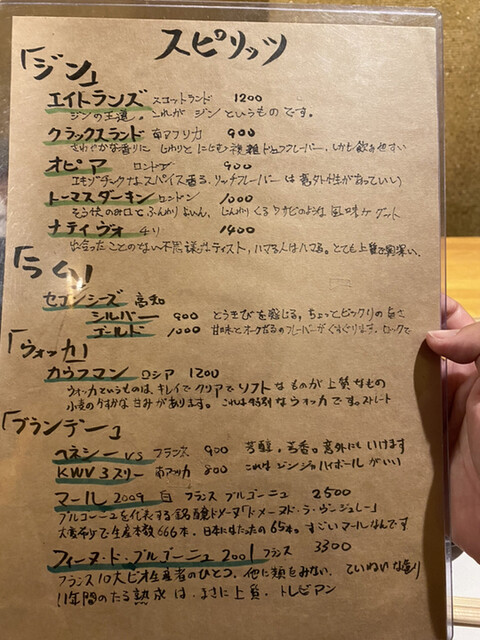 スピリッツ
「ジン」
エイトランズ スコットランド 1200
ジンの王道。これがジンというものです。
クラックスランド 南アフリカ 900
さわやかな香りに じわりと にじむ 複雑 フレーバー、しかも飲みやすい
オピア ロンドン 900
エキゾチックなスパイス香る、リッチフレーバーは意外性があっていい
トーマスダーキン ロンドン 1000
ふんわり じんわりくる ワサビのような風味が グッド
ナティヴォ チリ 1400
出会ったことのない不思議なテイスト、ハマる人はハマる。とても上質で奥深い。
「ラム」
セブンシーズ 高知
シルバー 900 とうきびを感じる、ちょっとビックリの旨さ
ゴールド 1000 甘味とオーク香るのフレーバーがくすぐります。ロックで
「ウォッカ」
カウフマン ロシア 1200
ウォッカというものは、キレイでクリアでソフトなものが上質なもの
小麦のかすかな甘みがあります。これは特別なウォッカです。ストレート
「ブランデー」
ヘネシー VS フランス 900 芳醇、芳香。意外にもいけます
KWV 3スリー 南アフリカ 800 これはジンジャハイボールがいい
マール 2009 白 フランス ブルゴーニュ 2500
ブルゴーニュを代表する銘醸ドメーヌ「ドメーヌ・ド・ラ・ヴージュレー」
大変希少で生産本数666本、日本にはたったの65本。すごいマールなんです
フィーヌ・ド・ブルゴーニュ 2001 フランス 3300
フランス10大ビオ生産者のひとつ、他に類をみない、ていねいな造り
11年間のたる熟成は、まさに上質、トレビアン